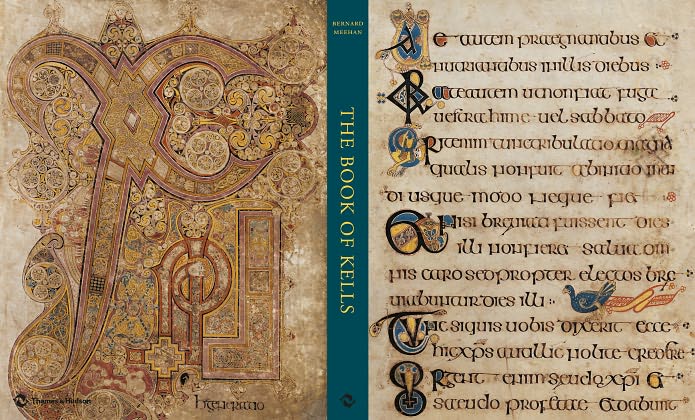 Thames & Hudson
h generatio
BERNARD
MEEHAN
THE BOOK OF KELLS
Uae autem praegnantibus et
nutrientibus in illis diebus
Orate autem ut non fiat fuga
uestra hieme uel sabbato
Erit enim tunc tribulatio magna
qualis non fuit ab initio mun
di usque modo neque fiet
Et nisi breuiati fuissent dies
illi non fieret salua om
nis caro sed propter electos bre
uiabuntur dies illi
Tunc si quis uobis dixerit ecce
hic xps aut illic nolite credere
Surgent enim seudo xpi et
seudo profetae et dabunt